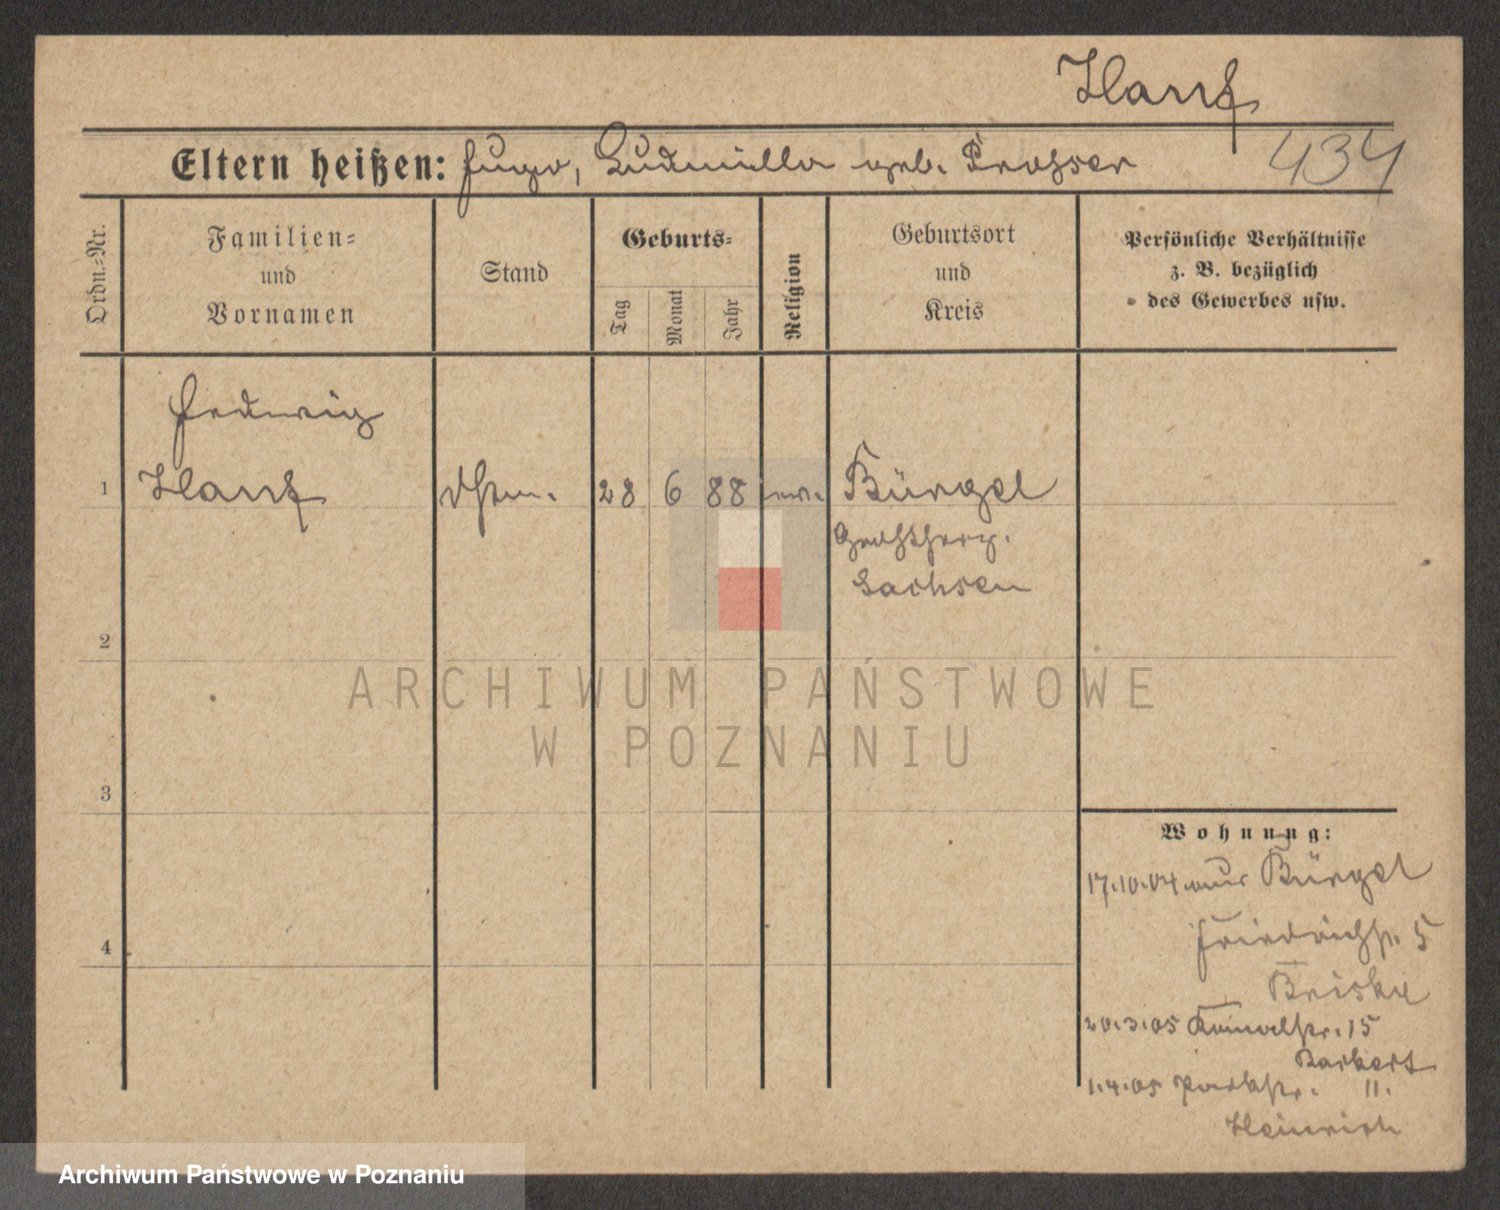 Hanf
434
Eltern heißen: Hugo, Ludmilla geb. Prosser
Ordn.-Nr.
Familien-
und
Vornamen
Stand
Geburts-
Tag
Monat
Jahr
Religion
Geburtsort
und
Kreis
Persönliche Verhältnisse
z. B. bezüglich
des Gewerbes usw.
Hedwig
1 Hanf 28 6 88 ev. Bürgel
Sachsen
2
3
4
ARCHIWUM PAŃSTWOWE
W POZNANIU
Wohnung:
17.10.04 aus Bürgel
Friedrichstr. 5
Briske
20.3.05 Kanalstr. 15
Barkert
1.4.05 Parkstr. 11.
Heinrich
Archiwum Państwowe w Poznaniu